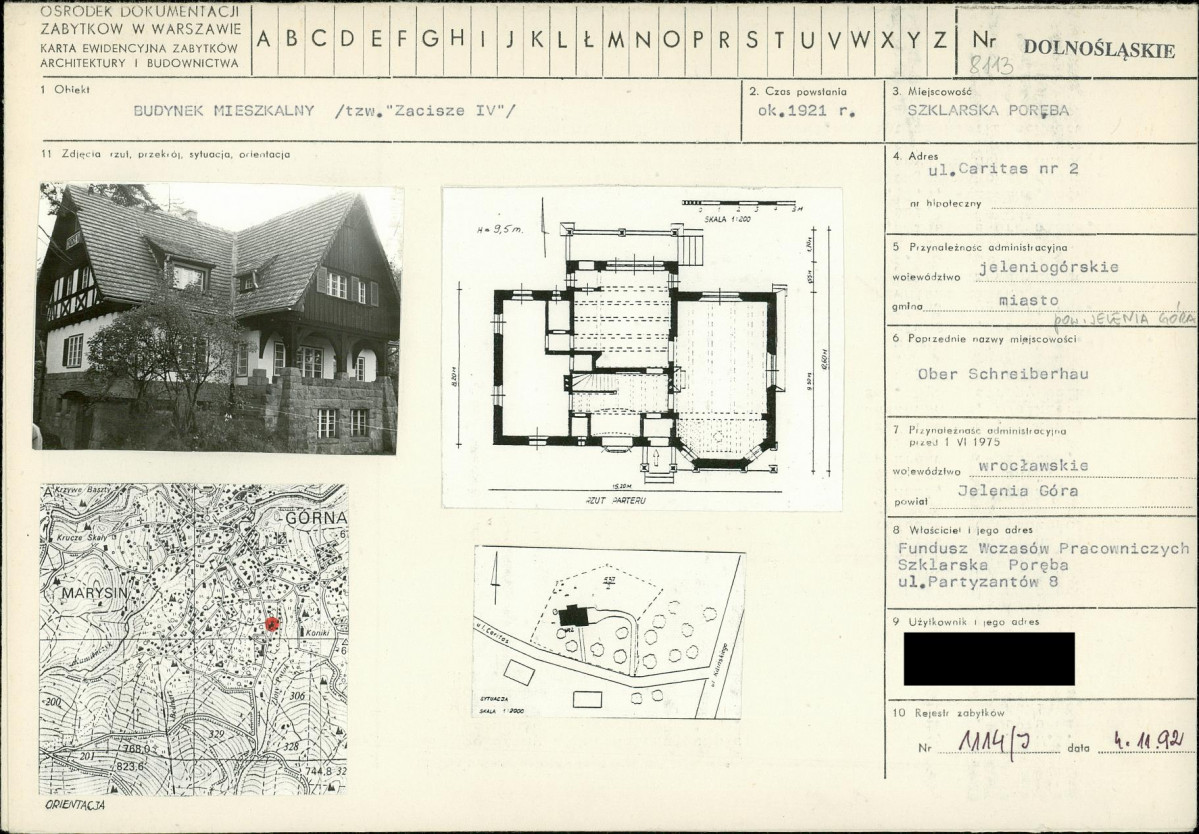 OŚRODEK DOKUMENTACJI
ZABYTKÓW W WARSZAWIE
KARTA EWIDENCYJNA ZABYTKÓW
ARCHITEKTURY I BUDOWNICTWA
A B C D E F G H I J K L Ł M N O P R S T U V W X Y Z
Nr DOLNOŚLĄSKIE
8113
1 Obiekt
BUDYNEK MIESZKALNY /tzw."Zacisze IV"/
2. Czas powstania
ok.1921 r.
3. Miejscowość
SZKLARSKA PORĘBA
11 Zdjęcia rzut, przekrój, sytuacja, orientacja
4. Adres
ul.Caritas nr 2
nr hipoteczny
5 Przynależność administracyjna
województwo jeleniogórskie
gmina miasto
pow. JELENIA GÓRA
6. Poprzednie nazwy miejscowości
Ober Schreiberhau
7 Przynależność administracyjna
przed 1 VI 1975
województwo wrocławskie
powiat Jelenia Góra
8 Właściciel i jego adres
Fundusz Wczasów Pracowniczych
Szklarska Poręba
ul.Partyzantów 8
9 Użytkownik i jego adres
10 Rejestr zabytków
Nr 1114/J data 4.11.92
H = 9,5 m.
0 1 2 3 4 5 M
SKALA 1:200
15,20 M
RZUT PARTERU
Krzywe Baszty
GÓRNA
Krucze Skały
MARYSIN
Koniki
Kamieńczyk
200
306
329
328
768,0
201
823,6
744,8
ORIENTACJA
ul. Caritas
SYTUACJA
SKALA 1:2000